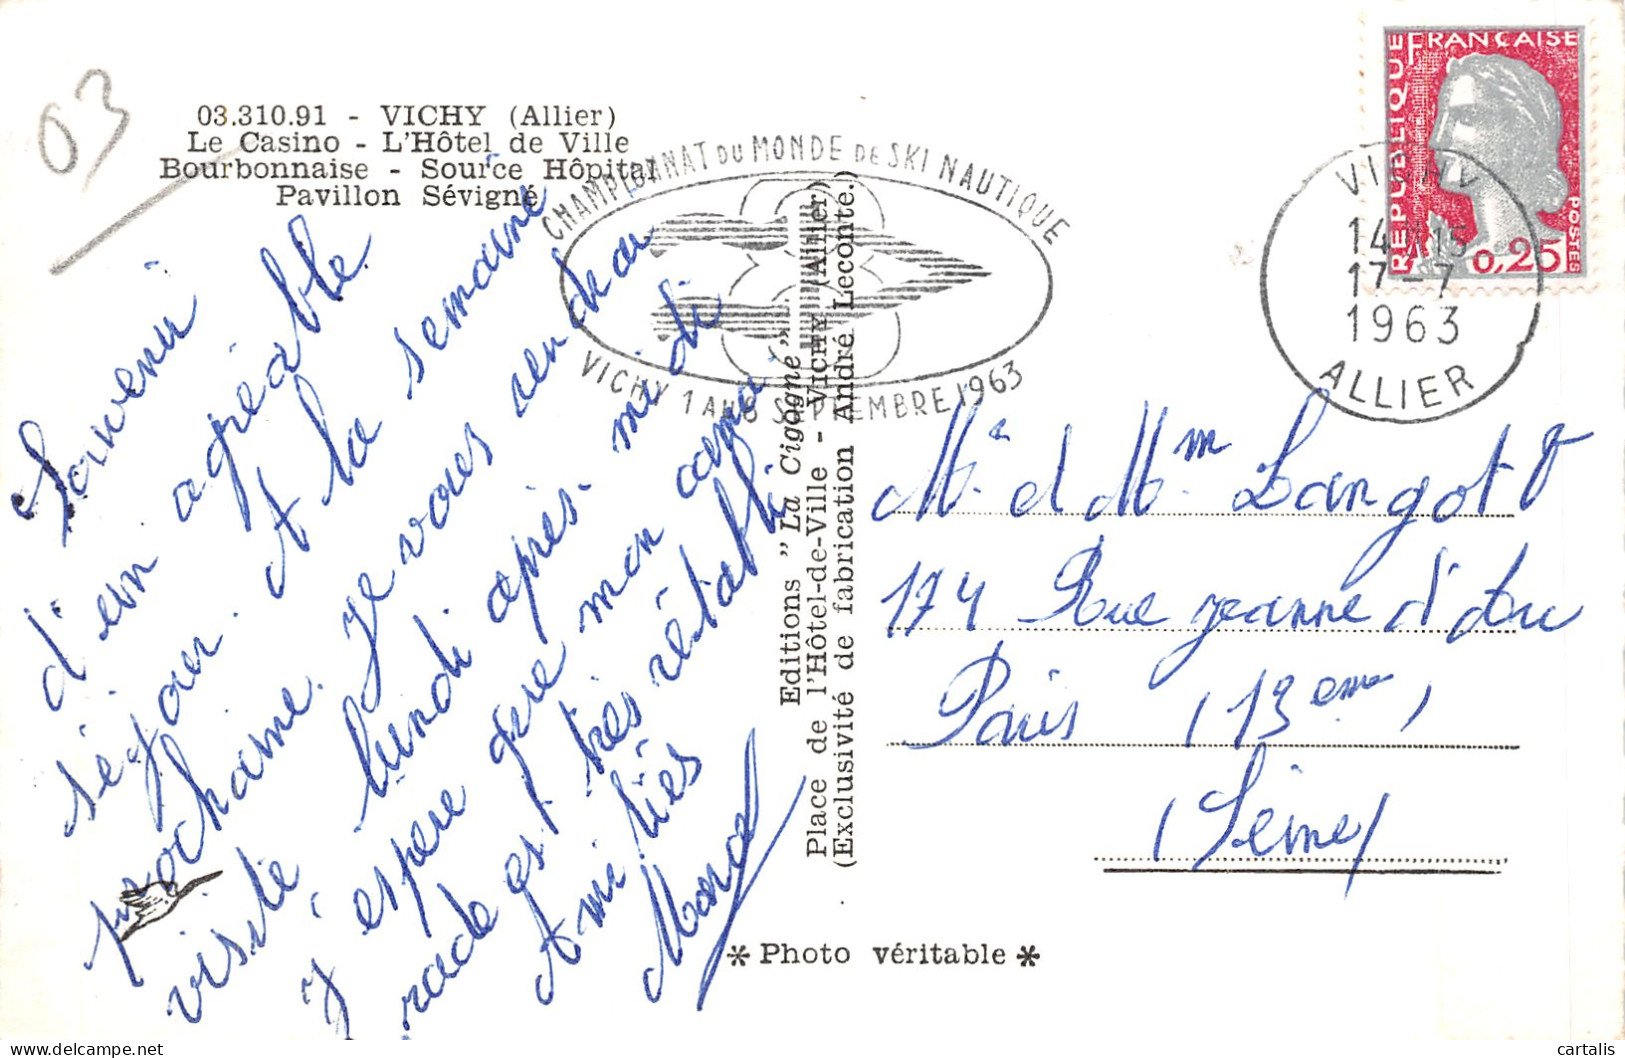 03
03.310.91 - VICHY (Allier)
Le Casino - L'Hôtel de Ville
Bourbonnaise - Source Hôpital
Pavillon Sévigné
Souvenir
d'un agréable
séjour. A la semaine
prochaine. Je vous rendrai
visite lundi après-midi
J'espère que mon cama
rade est très rétabli
Amitiés
CHAMPIONNAT DU MONDE DE SKI NAUTIQUE
VICHY 1 AU 8 SEPTEMBRE 1963
Editions "La Cigogne"
Place de l'Hôtel-de-Ville - VICHY (Allier)
(Exclusivité de fabrication André Leconte.)
RÉPUBLIQUE FRANÇAISE
POSTES
0,25
VICHY
14H15
17-7
1963
ALLIER
Mr et Mm Langot
174 Rue Jeanne d'Arc
Paris (13eme)
(Seine)
* Photo véritable *
cartalis